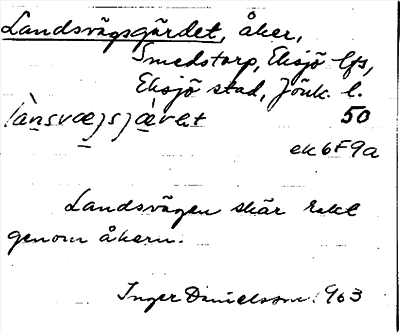 Landsvägsgärdet, åker,
Smedstorp, Eksjö lfs,
Eksjö stad, Jönk. l.
50
ek 6F9a
Landsvägen skär rakt
genom åkern.
Inger Danielsson 1963